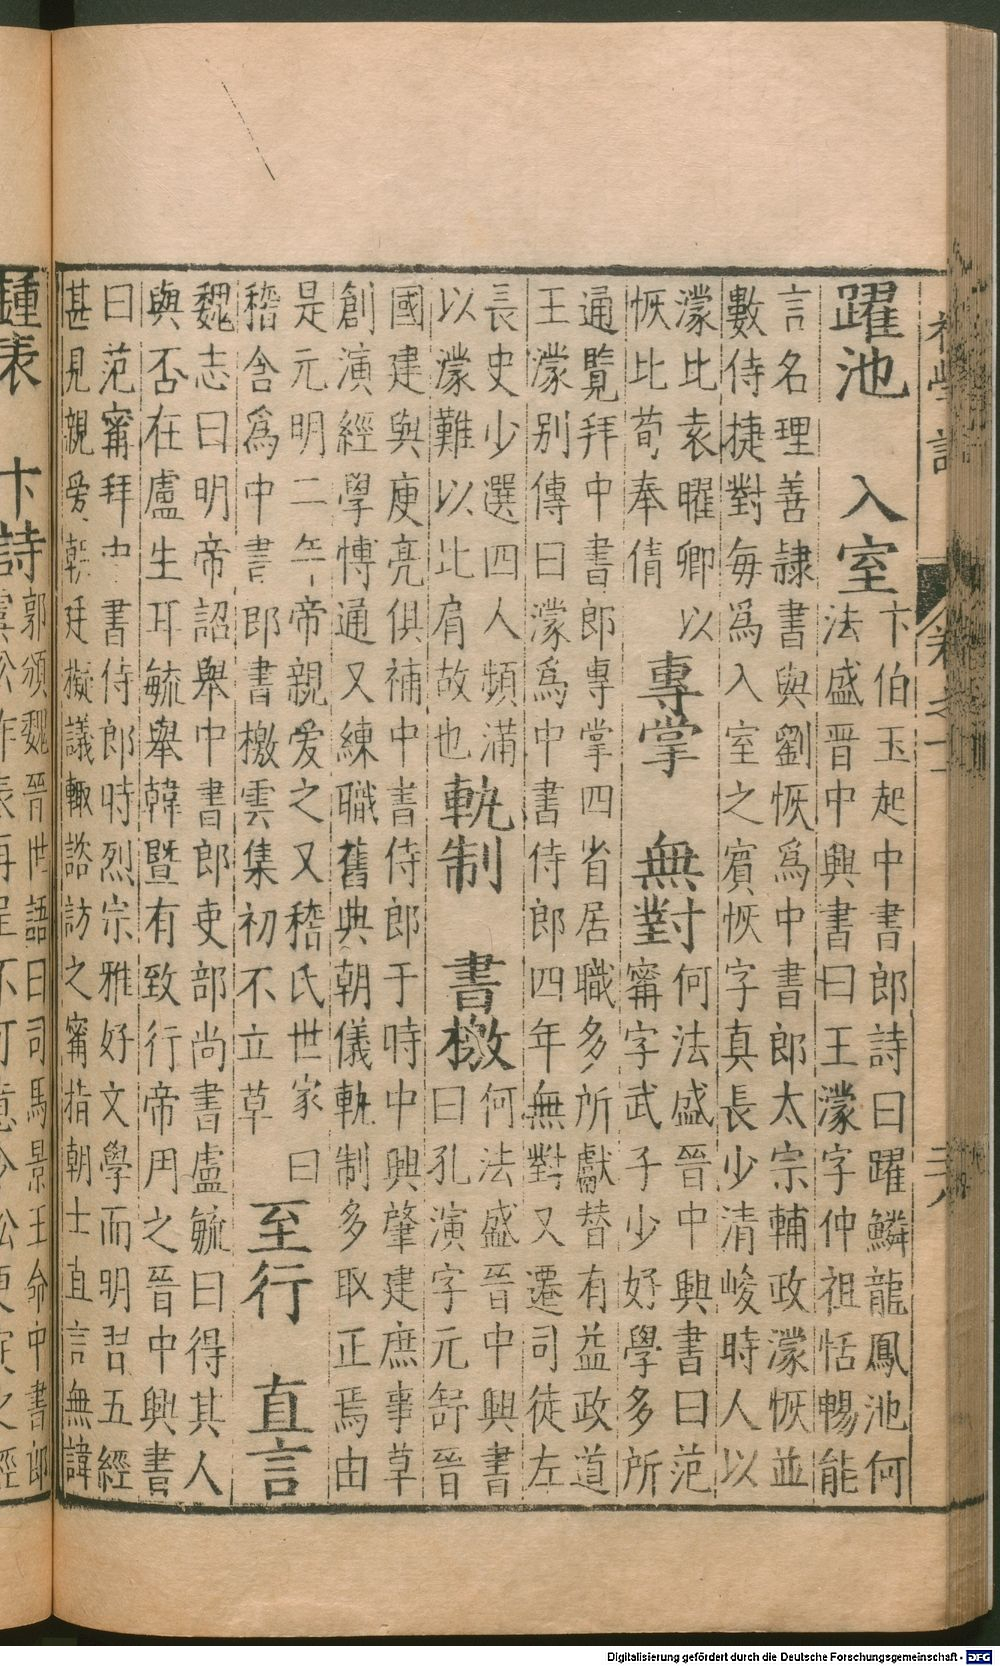 躍池　入室
卞伯玉起中書郎詩曰躍鱗龍鳳池何
法盛晉中興書曰王濛字仲祖恬暢能
言名理善隷書與劉恢爲中書郎太宗輔政濛恢並
數侍捷對每爲入室之賓恢字真長少清峻時人以
濛比袁曜卿以
恢比荀奉倩
專掌　無對
何法盛晉中興書曰范
甯字武子少好學多所
通覽拜中書郎專掌四省居職多所獻替有益政道
王濛別傳曰濛爲中書侍郎四年無對又遷司徒左
長史少選四人頻滿
以濛難以比肩故也
軌制　書檄
何法盛晉中興書
曰孔演字元舒晉
國建與庾亮俱補中書侍郎于時中興肇建庶事草
創演經學博通又練職舊典朝儀軌制多取正焉由
是元明二帝親爱之又嵇氏世家曰
嵇含爲中書郎書檄雲集初不立草
至行　直言
魏志曰明帝詔舉中書郎吏部尚書盧毓曰得其人
與否在盧生耳毓舉韓暨有致行帝用之晉中興書
曰范甯拜中書侍郎時烈宗雅好文學而明習五經
甚見親爱朝廷擬議輙諮訪之甯指朝士直言無諱
卞詩
郭頒魏晉世語曰司馬景王命中書郎
Digitalisierung gefördert durch die Deutsche Forschungsgemeinschaft - DFG